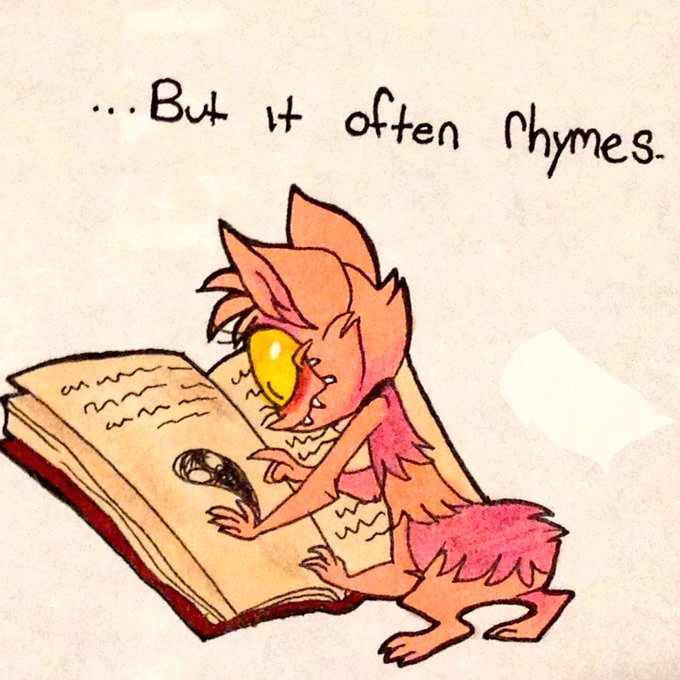 ...But it often rhymes.